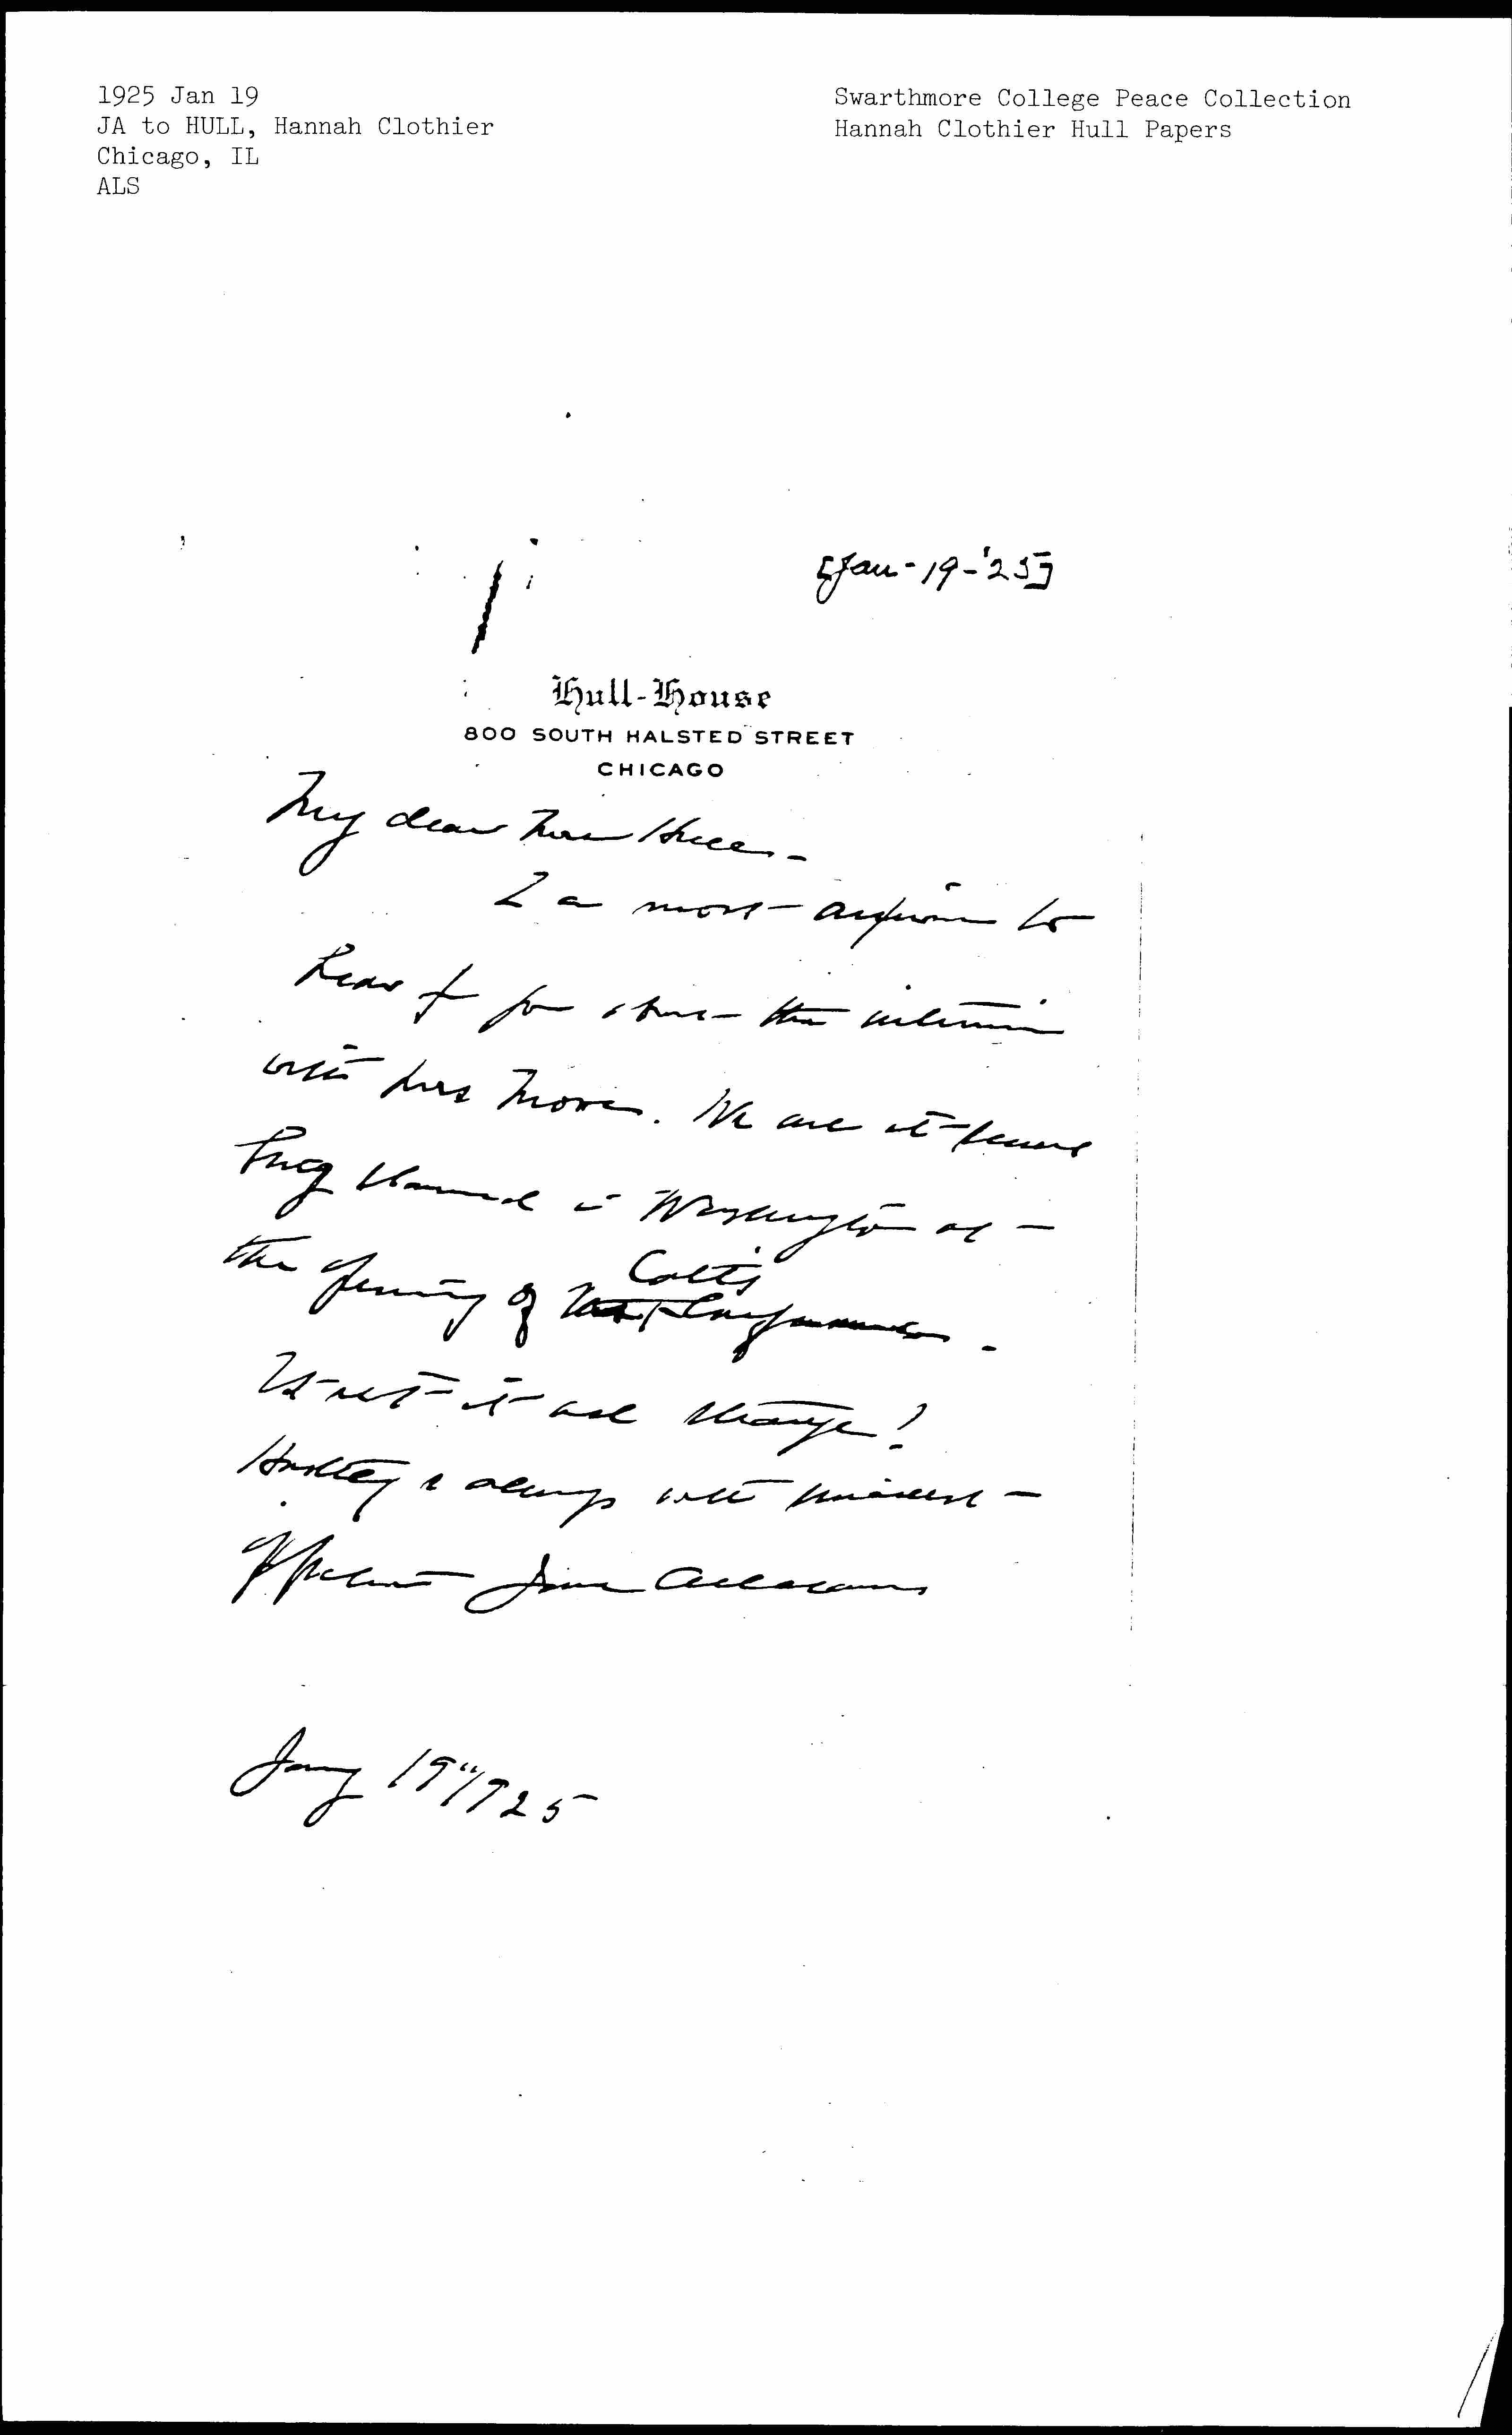 1925 Jan 19
JA to HULL, Hannah Clothier
Chicago, IL
ALS
Swarthmore College Peace Collection
Hannah Clothier Hull Papers
[Jan-19-'25]
Hull-House
800 SOUTH HALSTED STREET
CHICAGO
My dear Mrs Hull -
I am most anxious to
hear from you about the interview
with Mrs Moore. We are it seems
being blamed in Washington at
the opening of Mrs Catt's Conference.
Is not it all strange!
Hastily & always with
affection Jane Addams
Jany 19" 1925